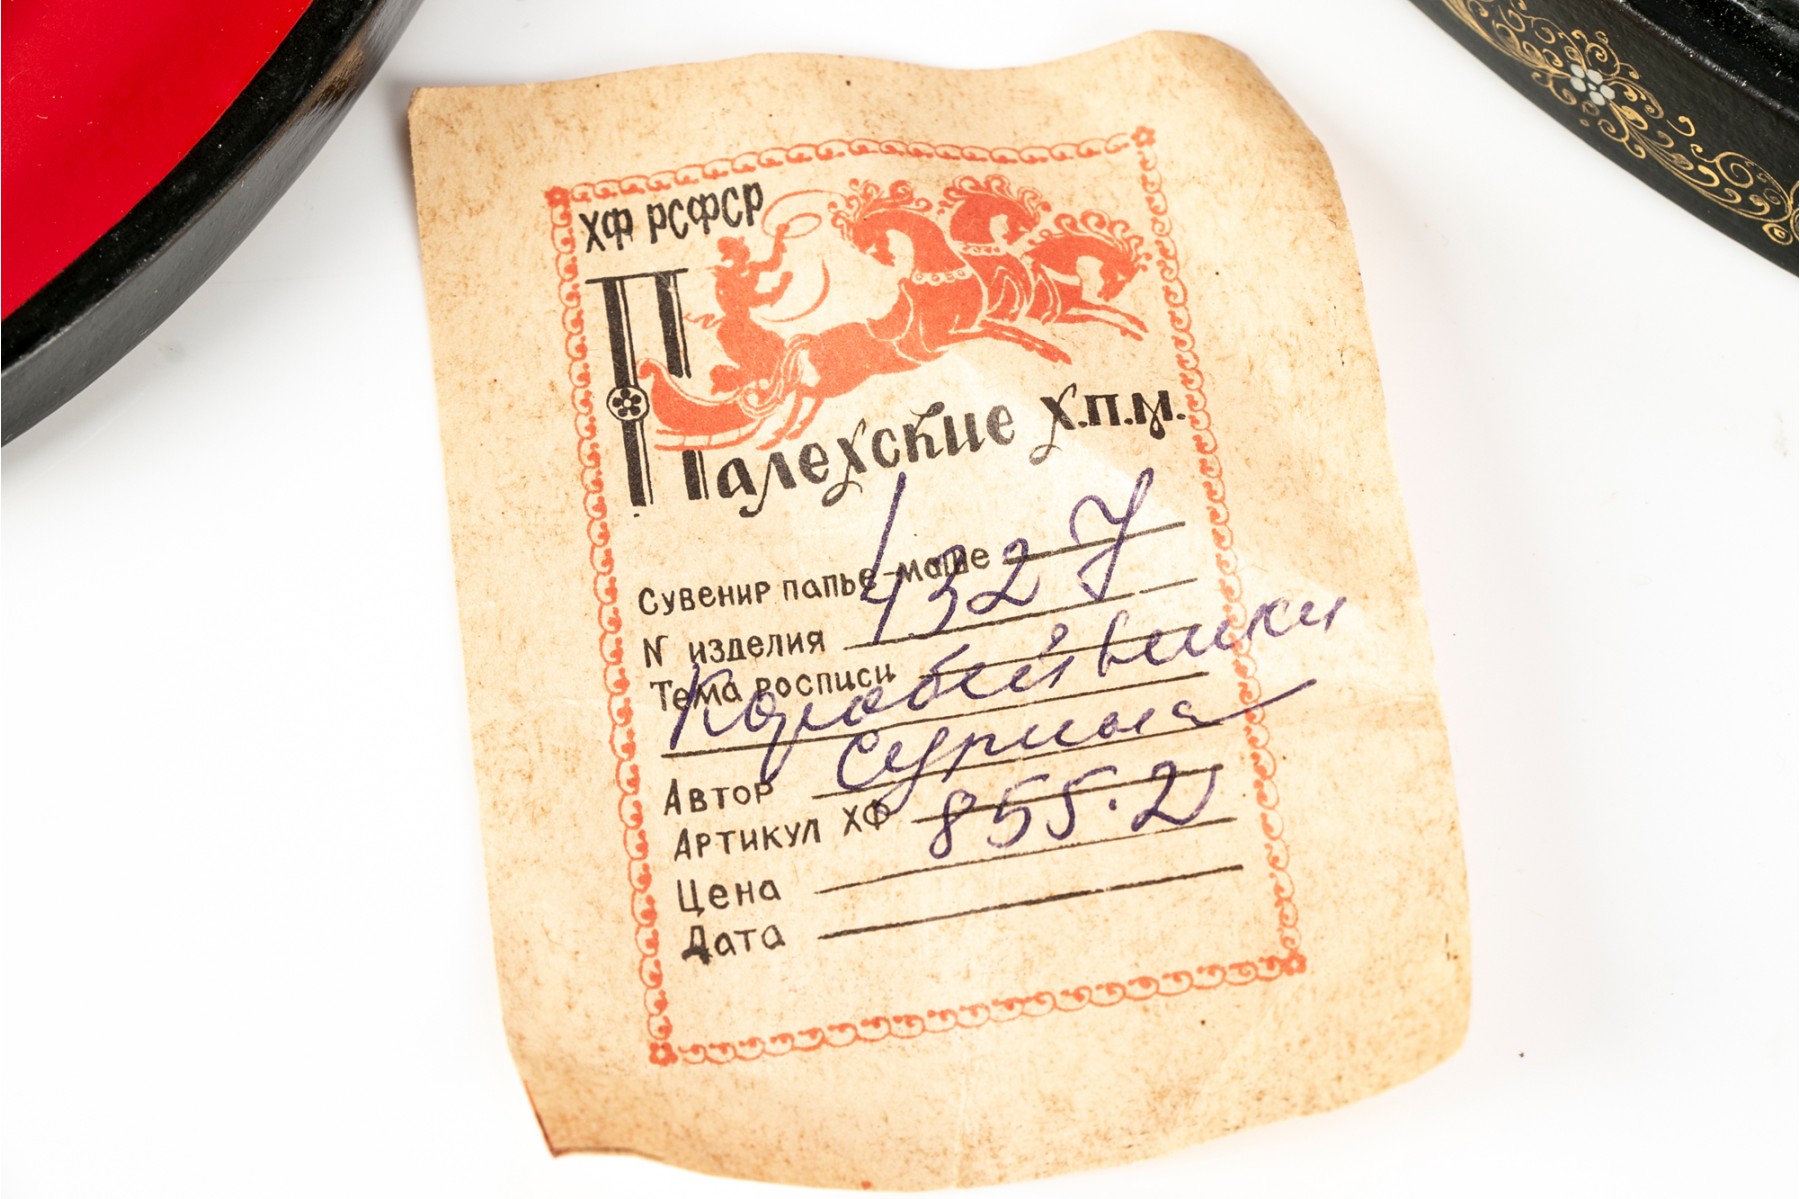 ХФ РСФСР
Палехские Х.П.М.
Сувенир папье-маше
N изделия 1327
Тема росписи
Коробейники
Автор Сурина
Артикул ХФ 855-2
Цена
Дата